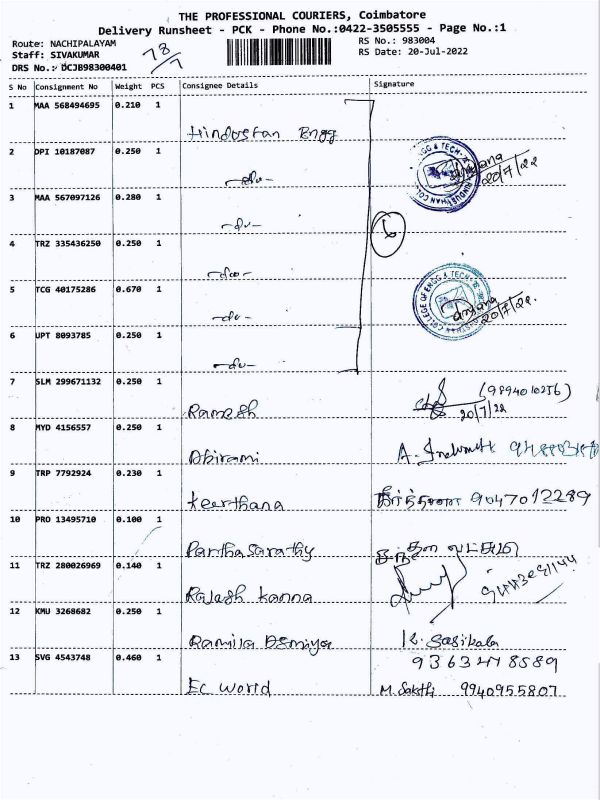 THE PROFESSIONAL COURIERS, Coimbatore
Delivery Runsheet - PCK - Phone No.:0422-3505555 - Page No.:1
Route: NACHIPALAYAM
Staff: SIVAKUMAR
DRS No.: DCJB98300401
78/7
RS No.: 983004
RS Date: 20-Jul-2022
S No Consignment No Weight PCS Consignee Details Signature
1 MAA 568494695 0.210 1 Hindustan Engg
2 DPI 10187087 0.250 1 20/7/22
3 MAA 567097126 0.280 1
4 TRZ 335436250 0.250 1
5 TCG 40175286 0.670 1 20/7/22
6 UPT 8093785 0.250 1
7 SLM 299671132 0.250 1 Ramesh (9894010256) 20/7/22
8 MYD 4156557 0.250 1 Abirami
9 TRP 7792924 0.230 1 Keerthana கீர்த்தனா 9047012289
10 PRO 13495710 0.100 1 Parthasarathy
11 TRZ 280026969 0.140 1 Rajesh Kanna
12 KMU 3268682 0.250 1 Ramila K. Sasikala
9363478589
13 SVG 4543748 0.460 1 Ec World M. Sakthi 9940955807